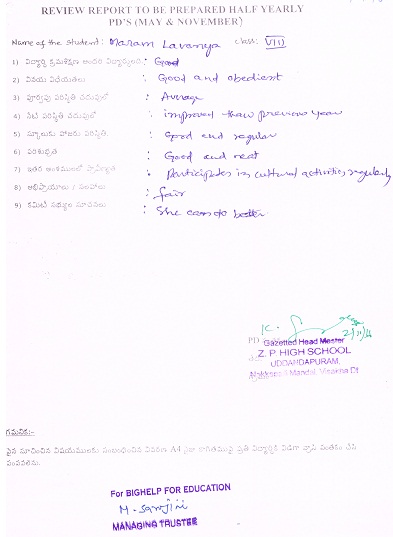 REVIEW REPORT TO BE PREPARED HALF YEARLY
PD'S (MAY & NOVEMBER)
Name of the Student: Maram Lavanya Class: VIII
1) విద్యార్థి క్రమశిక్షణ : Good
2) వినయ విధేయతలు : Good and obedient
3) పూర్వపు పరిస్థితి చదువులో : Average
4) నేటి పరిస్థితి చదువులో : improved than previous year
5) స్కూలుకు హాజరు పరిస్థితి. : Good and regular
6) పరిశుభ్రత : Good and neat
7) ఇతర అంశములలో ప్రావీణ్యత : Participates in cultural activities regularly
8) అభిప్రాయాలు / సలహాలు : fair
9) కమిటీ సభ్యుల సూచనలు : She can do better
PD
Gazetted Head Master
Z. P. HIGH SCHOOL
UDDANDAPURAM,
Nakkapalli Mandal, Visakha Dt
గమనిక:-
పైన సూచించిన విషయములకు సంబంధించిన వివరణ A4 సైజు కాగితముపై ప్రతి విద్యార్థికి విడిగా వ్రాసి సంతకం చేసి
పంపవలెను.
For BIGHELP FOR EDUCATION
M. Sarojini
MANAGING TRUSTEE